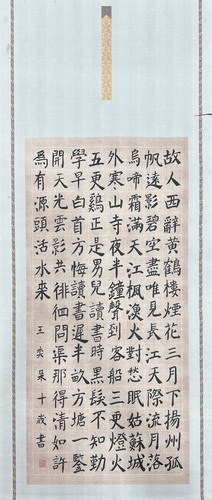 故人西辭黃鶴樓煙花三月下揚州孤
帆遠影碧空盡唯見長江天際流月落
烏啼霜滿天江楓漁火對愁眠姑蘇城
外寒山寺夜半鐘聲到客船三更燈火
五更鷄正是男兒讀書時黑髮不知勤
學早白首方悔讀書遲半畝方塘一鑒
開天光雲影共徘徊問渠那得清如許
爲有源頭活水來 王奕杲十歲書